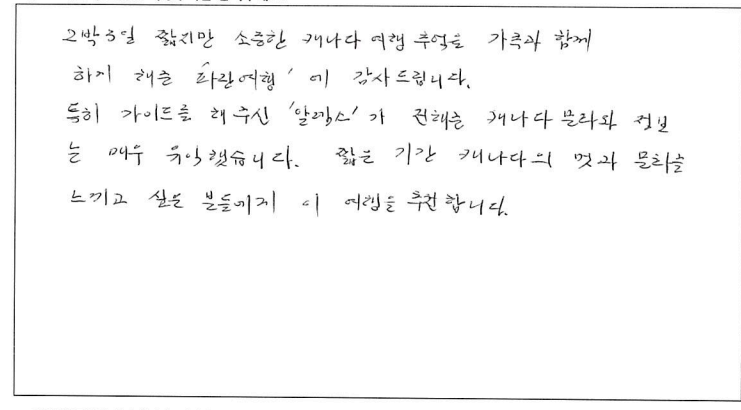 2박3일 짧지만 소중한 캐나다 여행 추억을 가족과 함께
하게 해준 '파란여행' 에 감사드립니다.
특히 가이드를 해주신 '알렉스' 가 전해준 캐나다 문화와 정보
는 매우 유익했습니다. 짧은 기간 캐나다의 멋과 문화를
느끼고 싶은 분들에게 이 여행을 추천합니다.